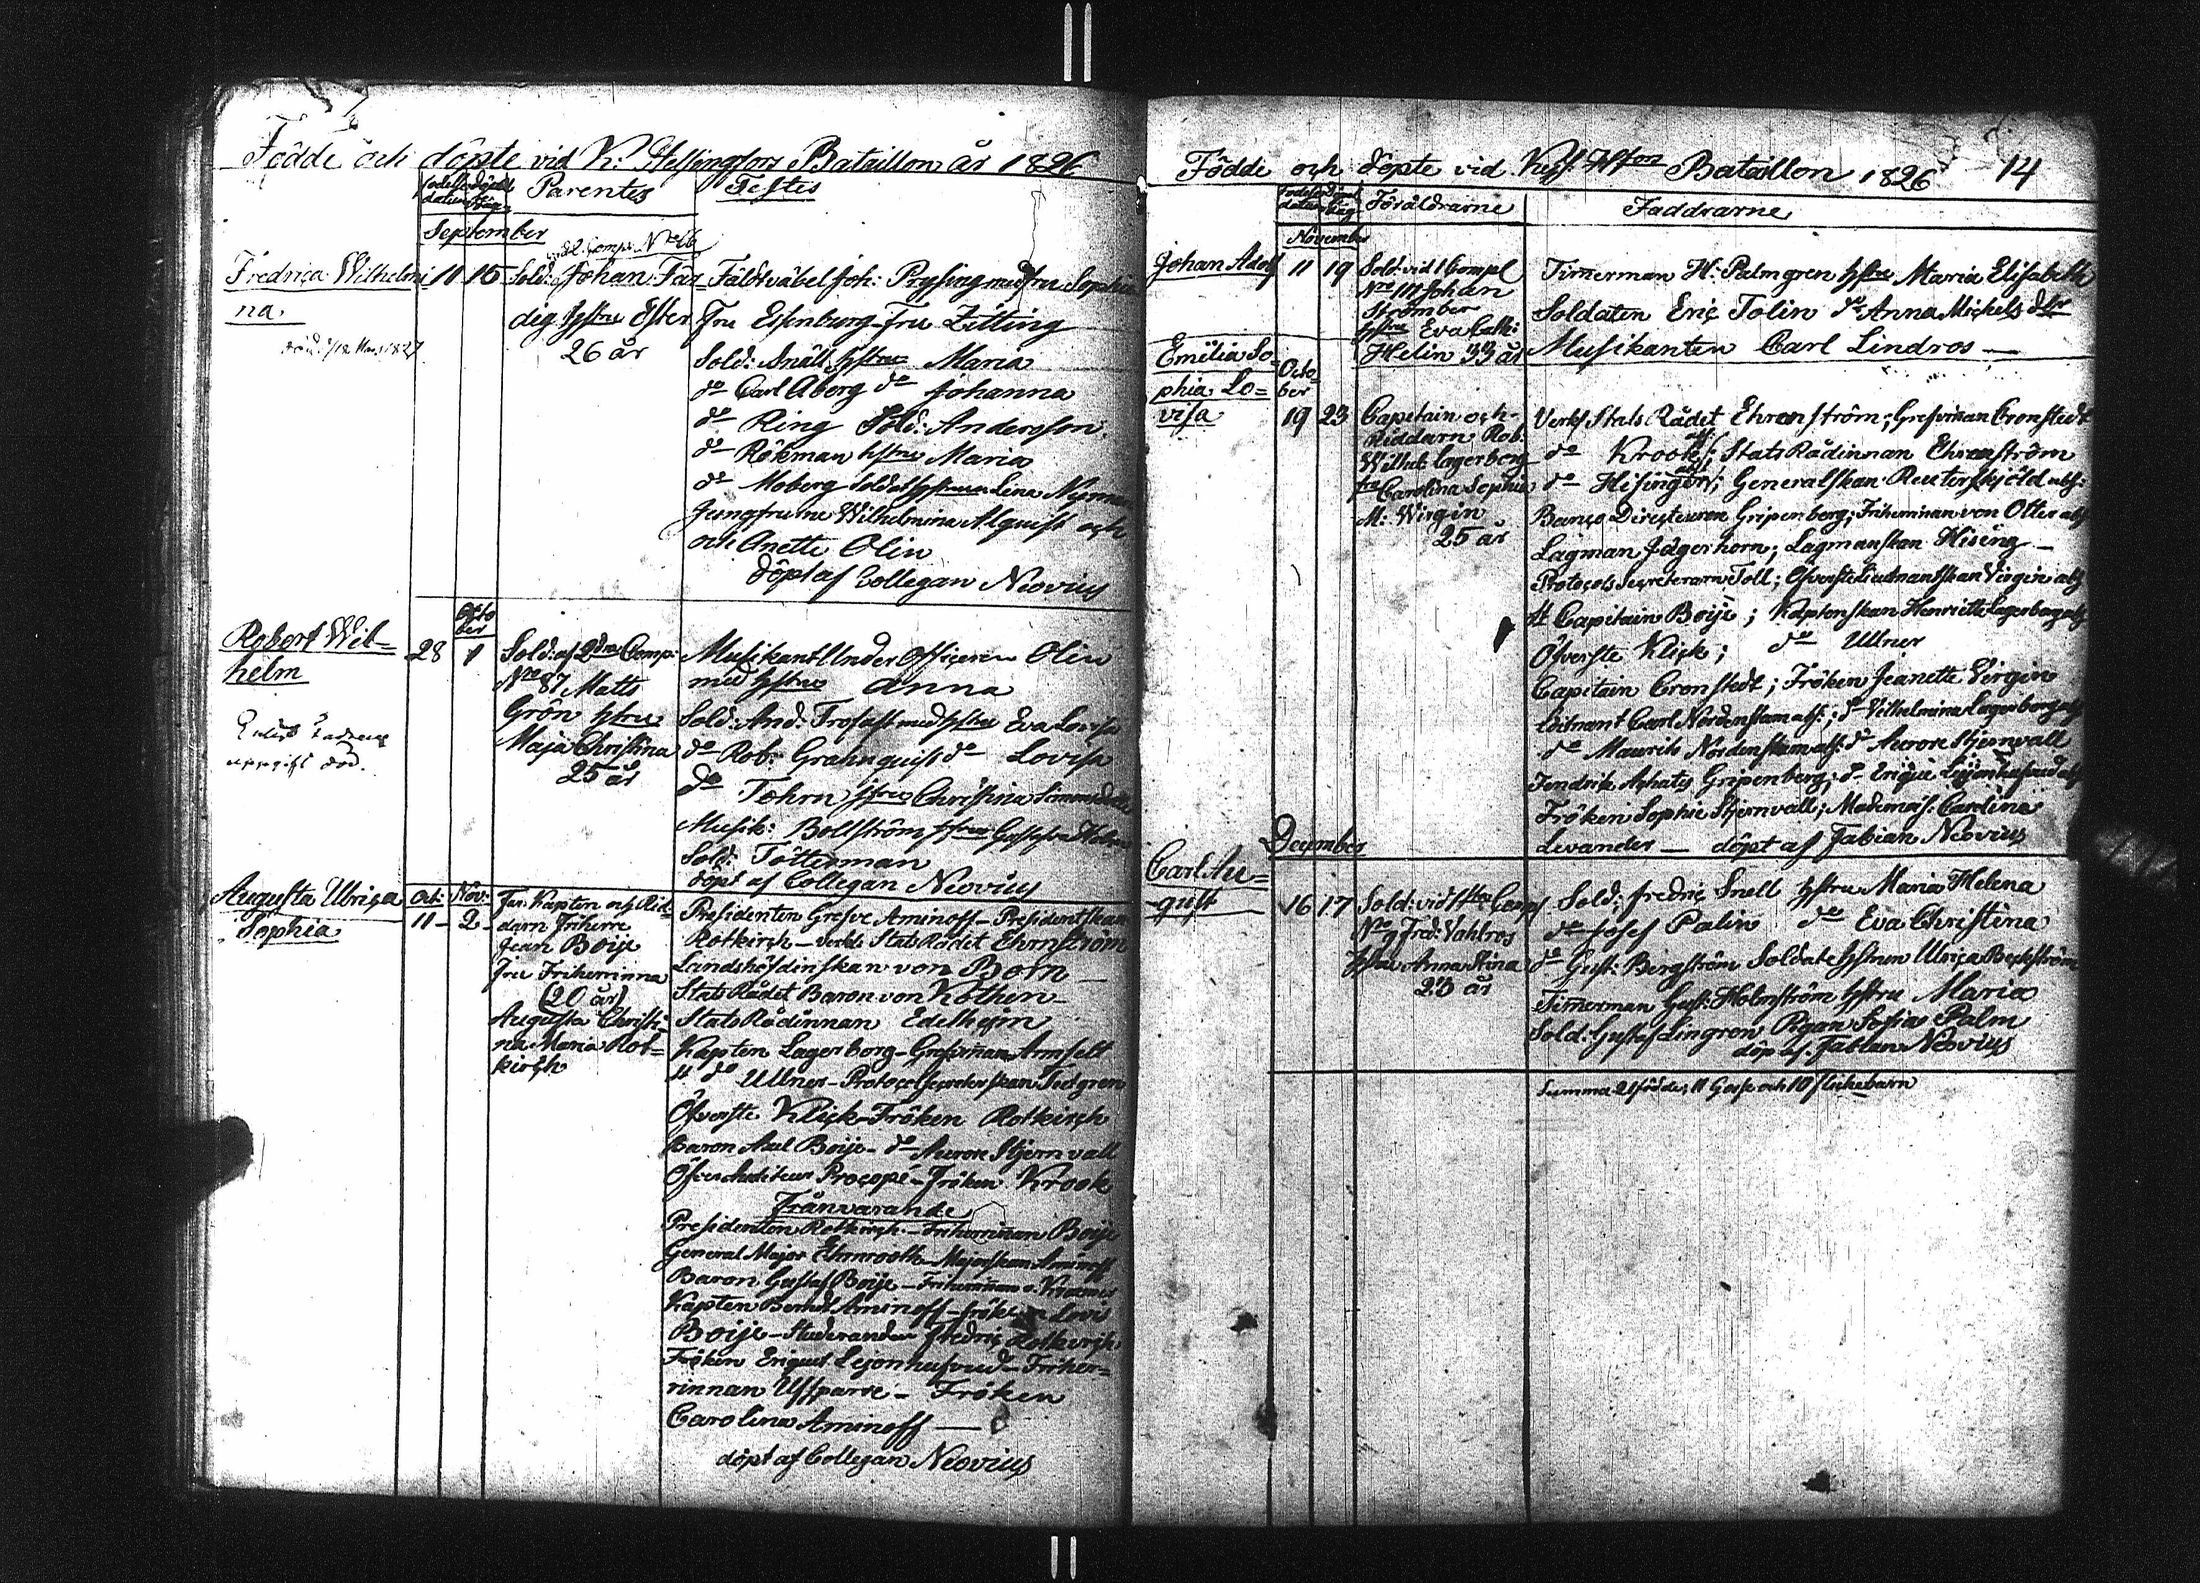 Födde och döpte vid K: Helsingfors Bataillon år 1826
födelse datum
döpelse dag
Parentes
Testes
September
vid 2. Comp: N:ro 66
Fredrica Wilhelmi
na
11 15
Sold: Johan Fär
dig hstru Ester
26 år
Fältväbel Joh: Pryssing med fru Sophia
Fru Essenburg - Fru Zitting
Sold: Snäll hstru Maria
do Carl Åberg do Johanna
do Ring Sold: Andersson
do Rökman hstru Maria
do Moberg Soldat hstrun Lena Nyman
Jungfrurne Wilhelmina Alquist och
och Anette Olin
döpt af Collegan Neovius
Octo
ber
Robert Wil=
helm
28 1
Sold: af 2dra Comp:
Nro 87 Matts
Grön hstru
Maja Christina
25 år
uppgift död.
Musikant Under Officeren Olin
med hstru Anna
Sold: And: Trofast med hstru Eva Lovisa
do Rob: Grahnquist do Lovisa
do Tohrn hstru Christina
Musik: Bollström hstru
Sold: Tötterman
döpt af Collegan Neovius
Augusta Ulrica
Sophia
Oct: Nov:
11 - 2 -
Kapten och Rid-
darn Friherre
Jean Boije
Fru Friherrinna
(20 år)
Augusta Christi-
na Maria Rot=
kirch
Presidenten Grefve Aminoff - Presidentskan
Rotkirch - verkl: StatsRådet Ehrnström
Landshöfdinskan von Born
StatsRådet Baron von Kothen
StatsRådinnan Edelheim
Kapten Lagerborg - Grefvinnan Armfelt
do Ullner - Protocollsecreterskan Tutgren
Öfverste Klick - Fröken Rotkirch
Baron Axel Boije - do Aurore Stjernvall
Öfver Auditeur Procopé - Fröken Krook
Frånvarande
Presidenten Rotkirch - Friherrinnan Boije
General Major Ehrnrooth - Majorskan Aminoff
Baron Gustaf Boije - Friherrinnan v. Kraemer
Kapten Berndt Aminoff - Fröken Lovis
Boije - Studeranden Fredric Rotkirch
Fröken Eriquet Lejonhufvud - Friher=
rinnan Ulfsparre - Fröken
Carolina Aminoff
döpt af Collegan Neovius
Födde och döpte vid Kejs. Hfors Bataillon 1826
14
födelse datum
döpelse dag
Föräldrarne
Faddrarne
November
Johan Adolf
11 19
Sold: vid 1 Compl
Nro 111 Johan
Strömber
hstru Eva Cath:
Helin 33 år
Timerman H: Palmgren hstru Maria Elisabeth
Soldaten Eric Tolin do Anna Michels dtr
Musikanten Carl Lindros
Emilia So-
phia Lo=
visa
Octo-
ber
19 23
Capitain och
Riddarn Rob:
Wilhel: Lagerborg
fru Carolina Sophia
M: Virgin
25 år
Verkl StatsRådet Ehrenström; Grefvinnan Cronstedt
do Krook; StatsRådinnan Ehrenström
do Hisinger; Generalskan Reuterskjöld abs:
Banco Directeuren Gripenberg; Friherrinnan von Otter abs
Lagman Jägerhorn; Lagmanskan Hising
Protocols Secreteraren Toll; Öfverste Lieutnantskan Virgin abs
St Capitain Boije; Kaptenskan Henriette Lagerborg abs
Öfverste Klick; do Ullner
Capitain Cronstedt; Fröken Jeanette Virgin
Leitnant Carl Nordenstam abs:; do Vilhelmina Lagerborg abs
do Maurits Nordenstam abs: do Aurore Stjernvall
Fendrik Achates Gripenberg; do Erique Lejonhufvud abs
Fröken Sophie Stjernvall; Mademois: Carolina
Levander - döpt af Fabian Neovius
December
Carl Au=
gust
16 17
Sold: vid 1sta Comp
Nro 9 Fred: Vahlros
hstru Anna Stina
23 år
Sold: Fredric Snell hstru Maria Helena
do Josef Palin do Eva Christina
do Gust: Bergström Soldate hstrun Ulrica Beckström
Timerman Gust: Holmström hstru Maria
Sold: Gustaf Lingron, Pigan Sofia Palm
döpt af Fabian Neovius
Summa 21 födde; 11 Goss: och 10 flickebarn